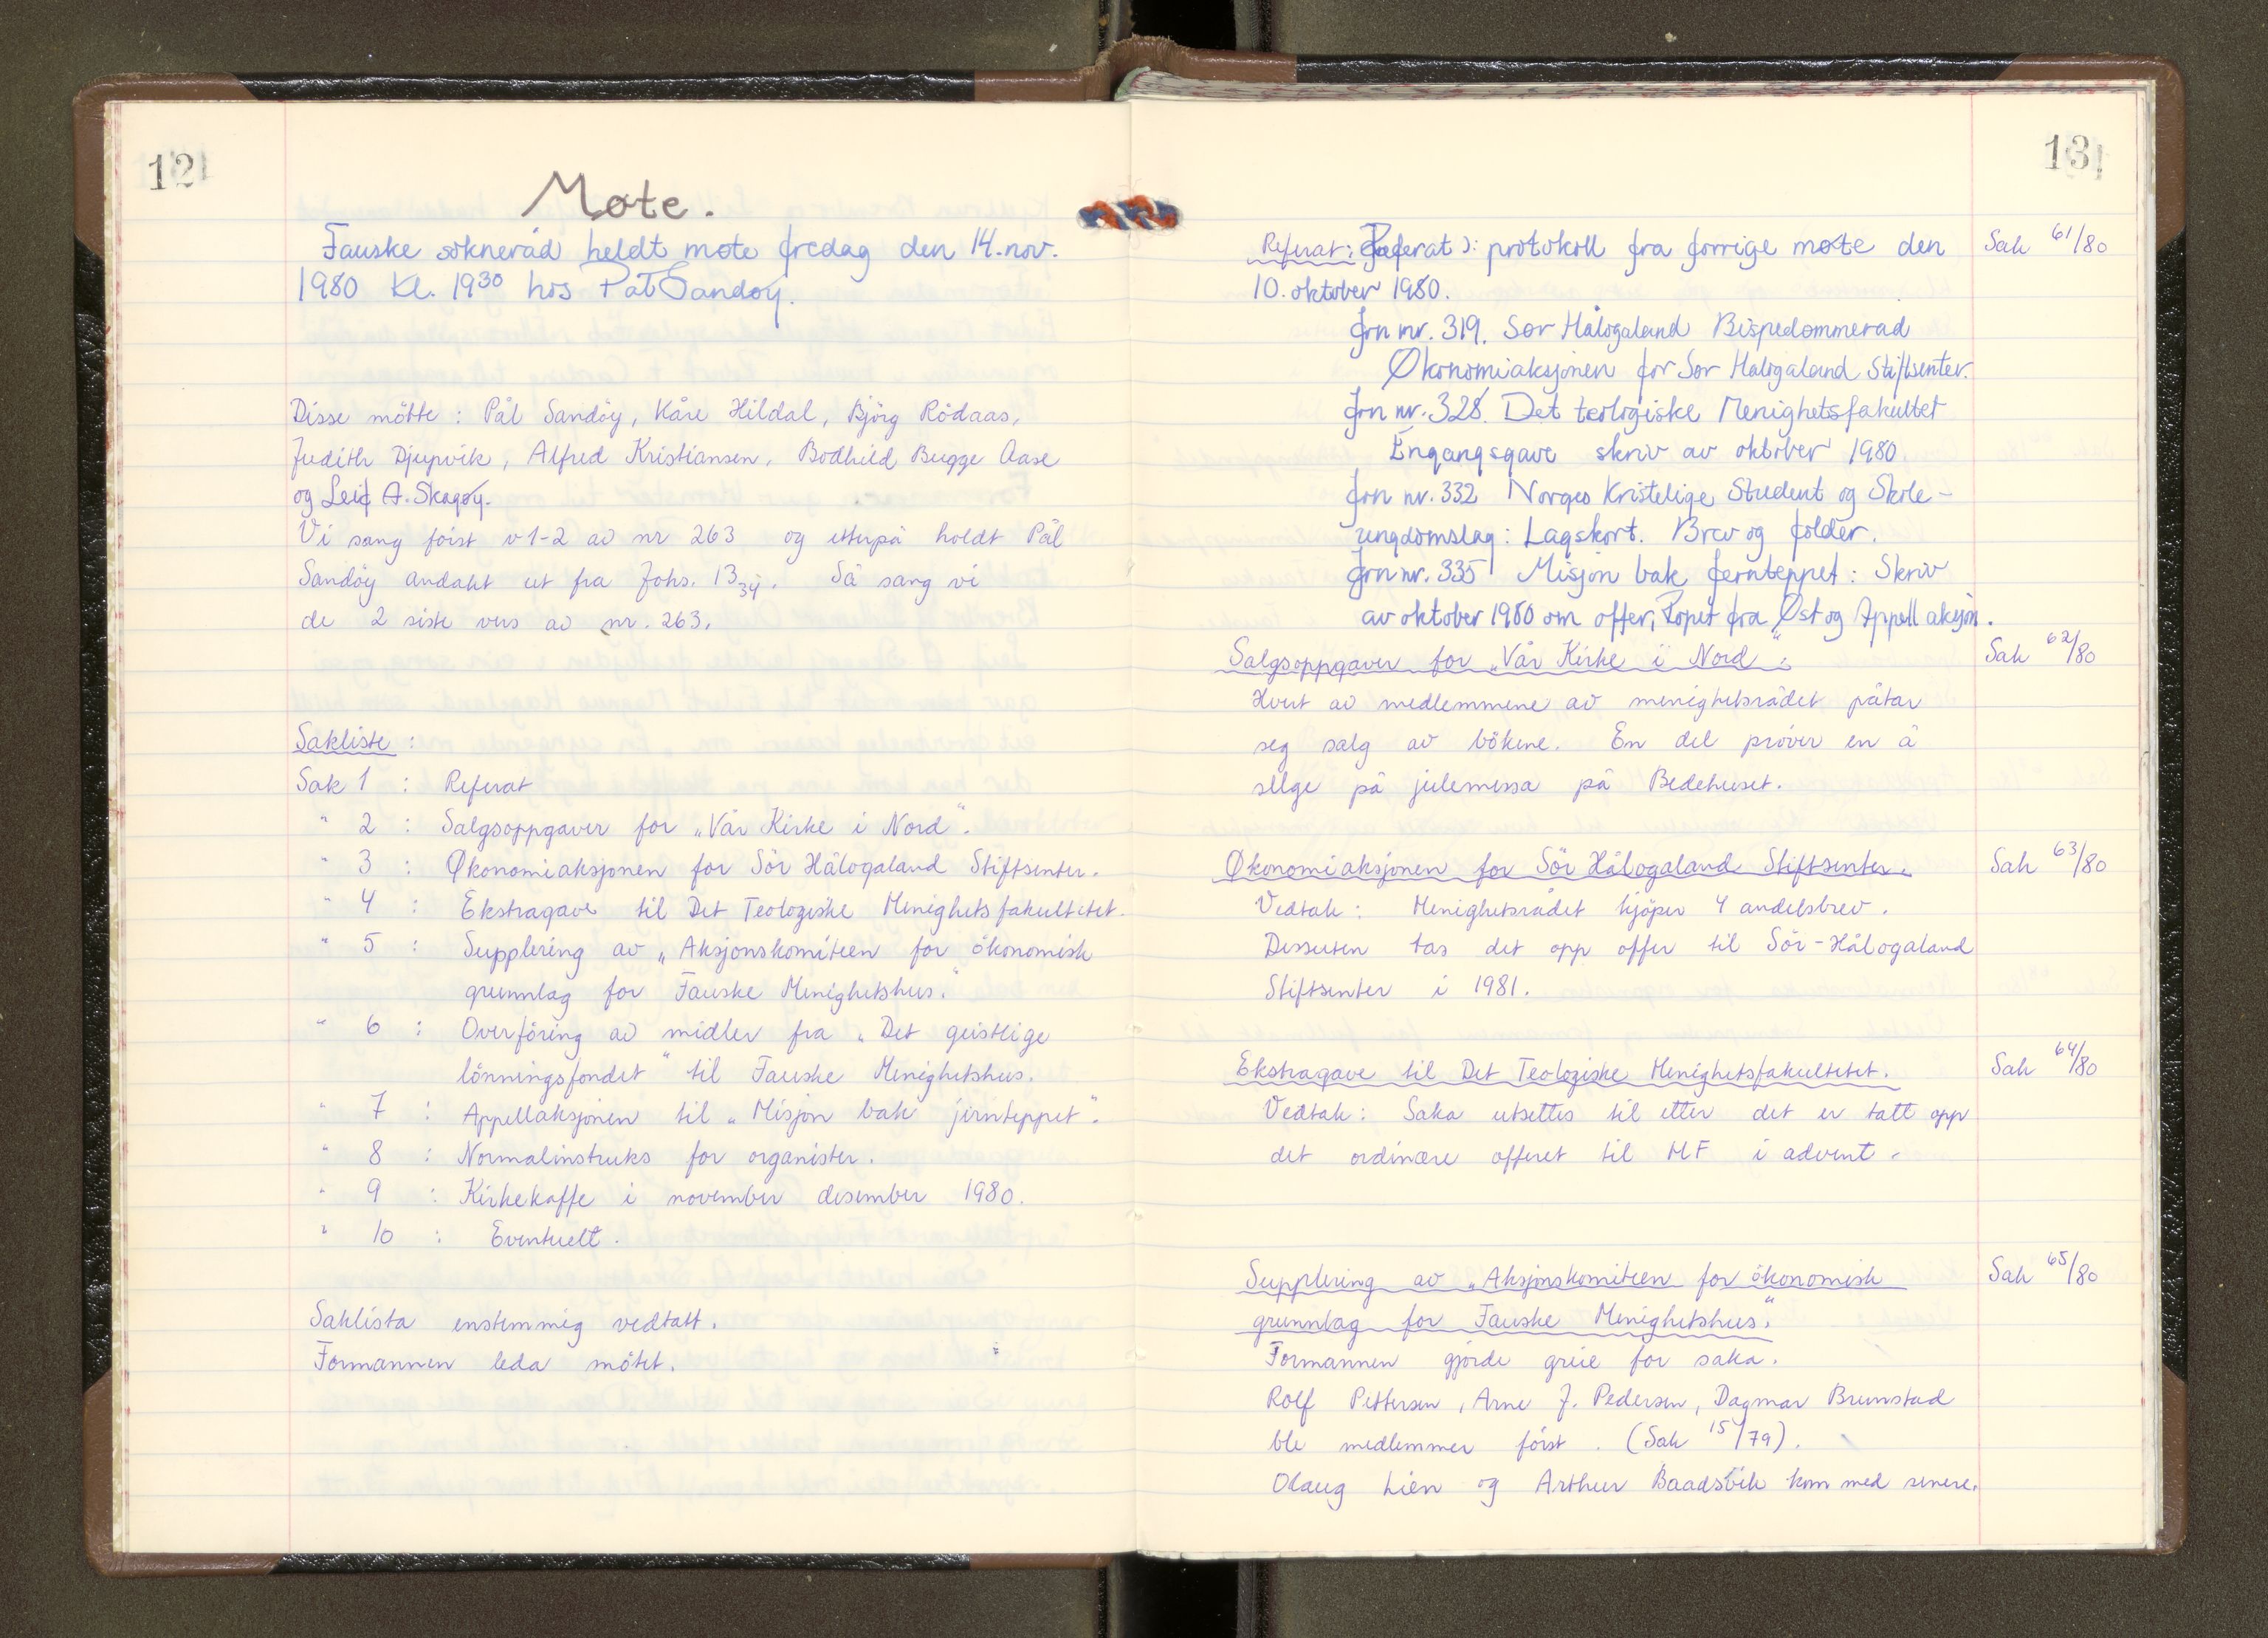 12
Møte.
Fauske sokneråd heldt møte fredag den 14. nov.
1980 kl. 19³⁰ hos Pål Sandøy.
Disse mötte : Pål Sandöy, Kåre Hildal, Björg Rödaas,
Judith Djupvik, Alfred Kristiansen, Bodhild Bugge Aase
og Leif A. Skagøy.
Vi sang först v 1-2 av nr 263 og etterpå holdt Pål
Sandöy andakt ut fra Johs. 13₃₄. Så sang vi
de 2 siste vers av nr. 263.
Sakliste :
Sak 1 : Referat
" 2 : Salgsoppgaver for „Vår Kirke i Nord".
" 3 : Økonomiaksjonen for Sör Hålogaland Stiftsenter.
" 4 : Ekstragave til Det Teologiske Menighetsfakultetet.
" 5 : Supplering av „Aksjonskomiteen for ökonomisk
grunnlag for Fauske Menighetshus."
" 6 : Overföring av midler fra „Det geistlige
lönningsfondet" til Fauske Menighetshus.
" 7 : Appellaksjonen til „Misjon bak jernteppet".
" 8 : Normalinstruks for organister.
" 9 : Kirkekaffe i november desember 1980.
" 10 : Eventuelt.
Saklista enstemmig vedtatt.
Formannen leda mötet.
13
Referat: Referat ): protokoll fra forrige møte den
Sak 61/80
10. oktober 1980.
Jrn nr. 319. Sør Hålogaland Bispedømmeråd
Økonomiaksjonen for Sør Hålogaland Stiftsenter.
Jrn nr. 328. Det teologiske Menighetsfakultet
Engangsgave skriv av oktober 1980.
Jrn nr. 332 Norges Kristelige Student og Skole-
ungdomslag: Lagskort. Brev og folder.
Jrn nr. 335 Misjon bak jernteppet: Skriv
av oktober 1980 om offer, Ropet fra Øst og Appell aksjon.
Salgsoppgaver for „Vår Kirke i Nord":
Sak 62/80
Hvert av medlemmene av menighetsrådet påtar
seg salg av bökene. En del pröver en å
selge på julemessa på Bedehuset.
Økonomiaksjonen for Sör Hålogaland Stiftsenter.
Sak 63/80
Vedtak : Menighetsrådet kjöper 4 andelsbrev.
Dessuten tas det opp offer til Sör-Hålogaland
Stiftsenter i 1981.
Ekstragave til Det Teologiske Menighetsfakultetet.
Sak 64/80
Vedtak : Saka utsettes til etter det er tatt opp
det ordinære offeret til MF i advent.
Supplering av „Aksjonskomiteen for ökonomisk
Sak 65/80
grunnlag for Fauske Menighetshus."
Formannen gjorde greie for saka.
Rolf Pettersen, Arne J. Pedersen, Dagmar Brunstad
ble medlemmer först. (Sak 15/79).
Olaug Lien og Arthur Baadsvik kom med senere.